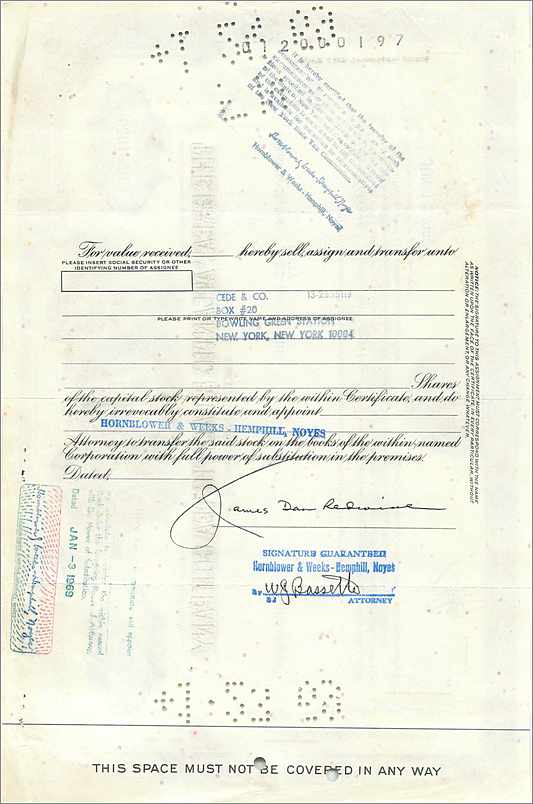 012000197
It is hereby certified that the transfer of the
of the New York State Tax Commission
Hornblower & Weeks - Hemphill, Noyes
For value received, hereby sell, assign and transfer unto
PLEASE INSERT SOCIAL SECURITY OR OTHER
IDENTIFYING NUMBER OF ASSIGNEE
CEDE & CO.
BOX #20
PLEASE PRINT OR TYPEWRITE NAME AND ADDRESS OF ASSIGNEE
BOWLING GREEN STATION
NEW YORK, NEW YORK 10004
Shares
of the capital stock represented by the within Certificate, and do
hereby irrevocably constitute and appoint
HORNBLOWER & WEEKS - HEMPHILL, NOYES
Attorney to transfer the said stock on the books of the within-named
Corporation with full power of substitution in the premises.
Dated,
NOTICE: THE SIGNATURE TO THIS ASSIGNMENT MUST CORRESPOND WITH THE NAME
AS WRITTEN UPON THE FACE OF THE CERTIFICATE, IN EVERY PARTICULAR, WITHOUT
ALTERATION OR ENLARGEMENT, OR ANY CHANGE WHATEVER.
James Dan Redwine
SIGNATURE GUARANTEED
Hornblower & Weeks - Hemphill, Noyes
By WJ Bassett
ATTORNEY
Dated JAN -3 1969
THIS SPACE MUST NOT BE COVERED IN ANY WAY